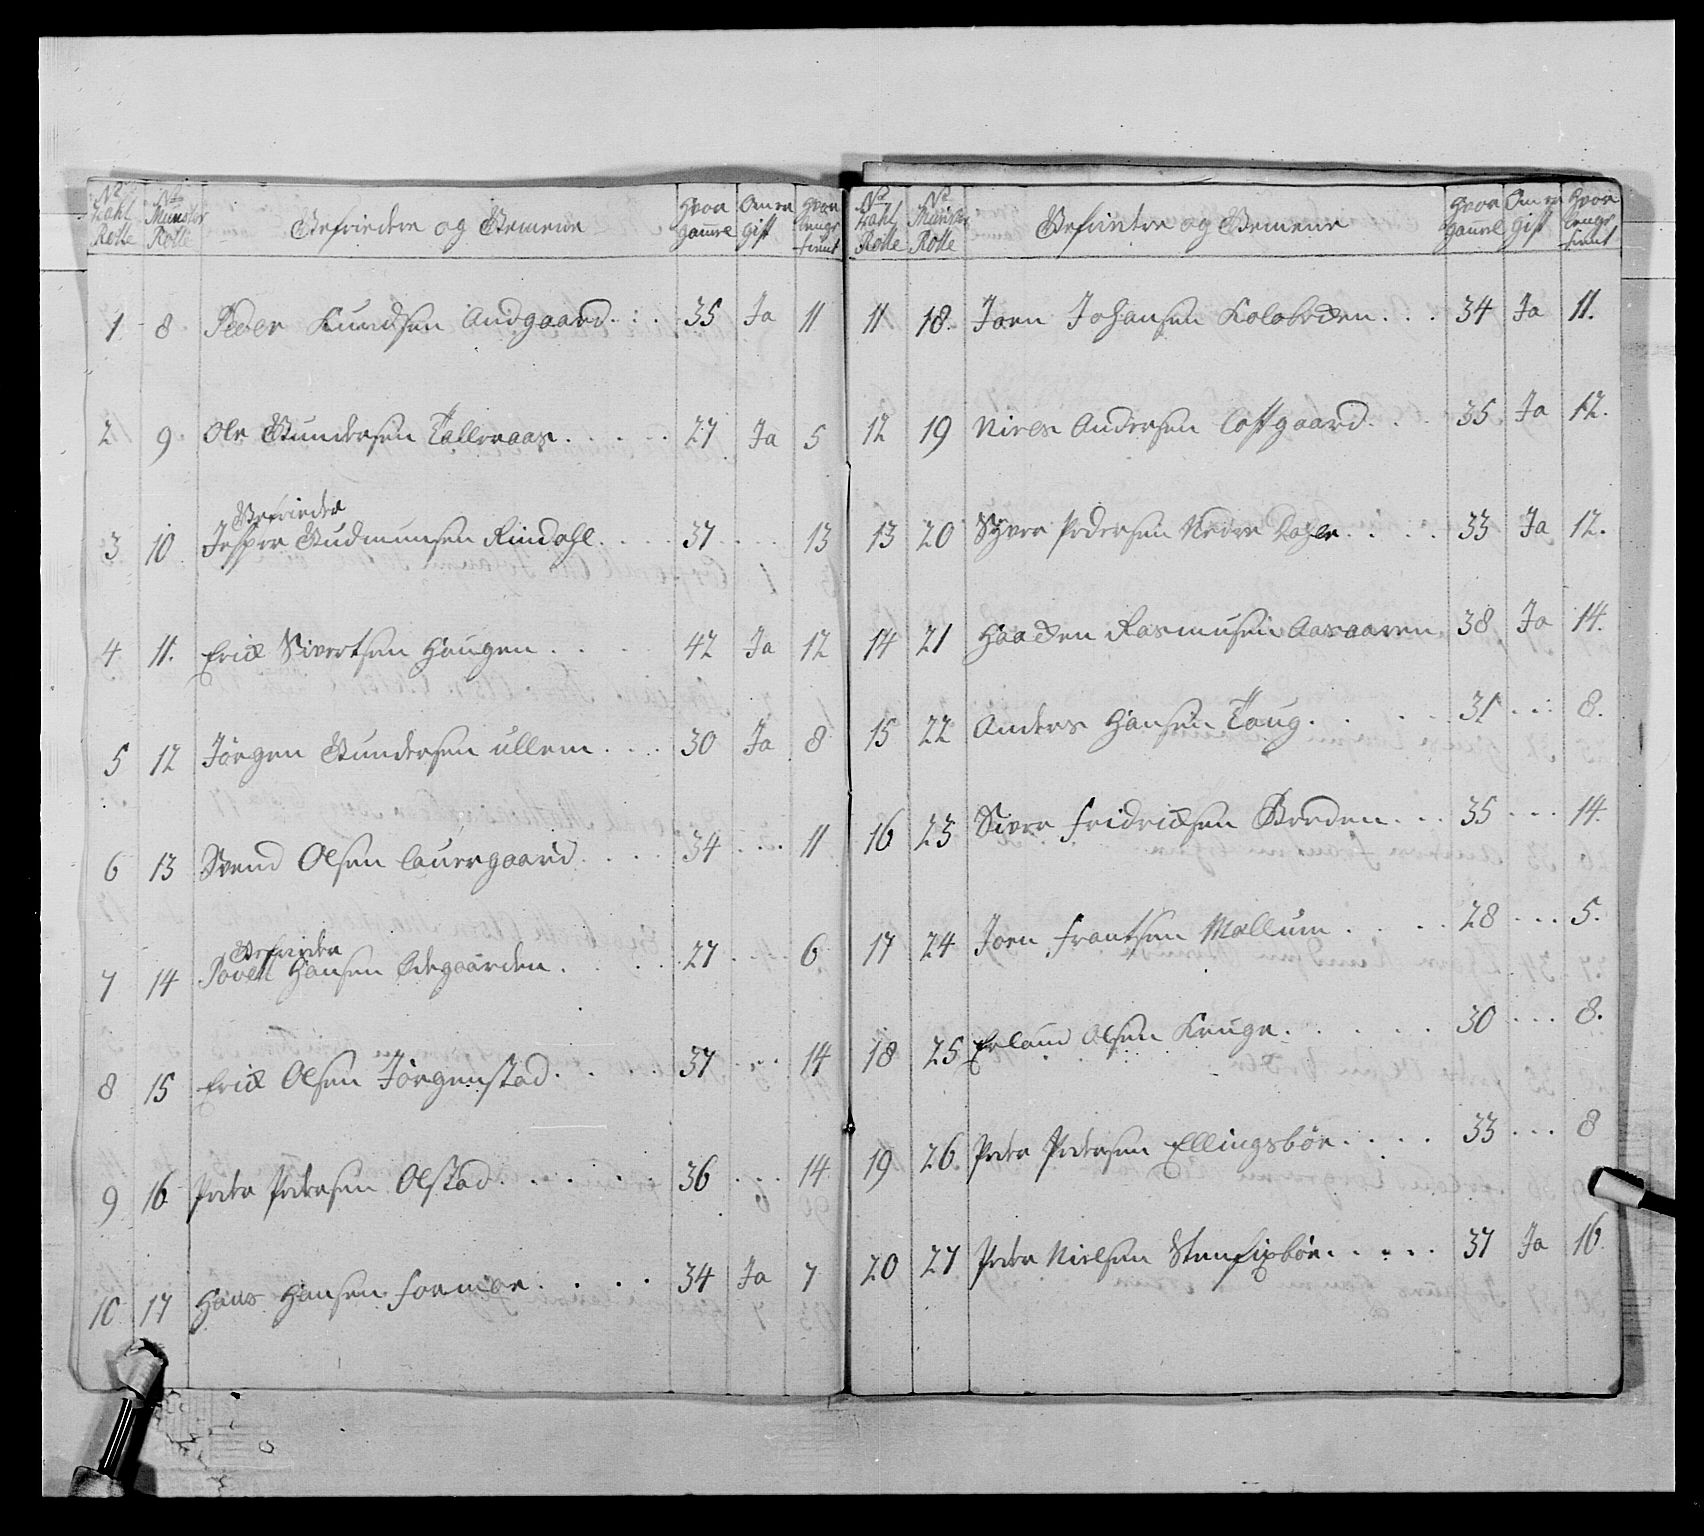 No Zahl Rolle | No Munster Rolle | Gefriedere og Gemene | Hvor gamel | Om er gift | Hvor lenge tient
1 8 Peder Knudsen Andgaard 35 Ja 11
2 9 Ole Gundersen Talleraas 27 Ja 5
Gefrieder
3 10 Jesper Gudmunsen Rindahl 37 13
4 11. Erick Sivertsen Haugen 42 Ja 12
5 12 Jörgen Gundersen Ullem 30 Ja 8
6 13 Svend Olsen Lauergaard 34 11
Gefrieder
7 14 Povell Hansen Ödegaarden 27 6
8 15 Erick Olsen Jörgenstad 37 14
9 16 Peder Pedersen Olstad 36 14
10 17 Hans Hansen Formoe 34 Ja 7
No Zahl Rolle | No Munster Rolle | Gefriedere og Gemene | Hvor gamel | Om er gift | Hvor lenge tient
11 18. Joen Johansen Koloboden 34 Ja 11.
12 19 Niels Andersen Loftgaard 35 Ja 12.
13 20 Syver Pedersen Nedre Dahle 33 Ja 12.
14 21 Haacken Rasmusen Aasaaren 38 Ja 14.
15 22 Anders Hansen Toug 31 8.
16 23 Siver Fridricksen Breden 35 14.
17 24 Joen Frantsen Mællum 28 5.
18 25 Erland Olsen Kruge 30 8.
19 26. Peder Pedersen Ellingsböe 33 8
20 27 Peder Nielsen Stenfixböe 37 Ja 16